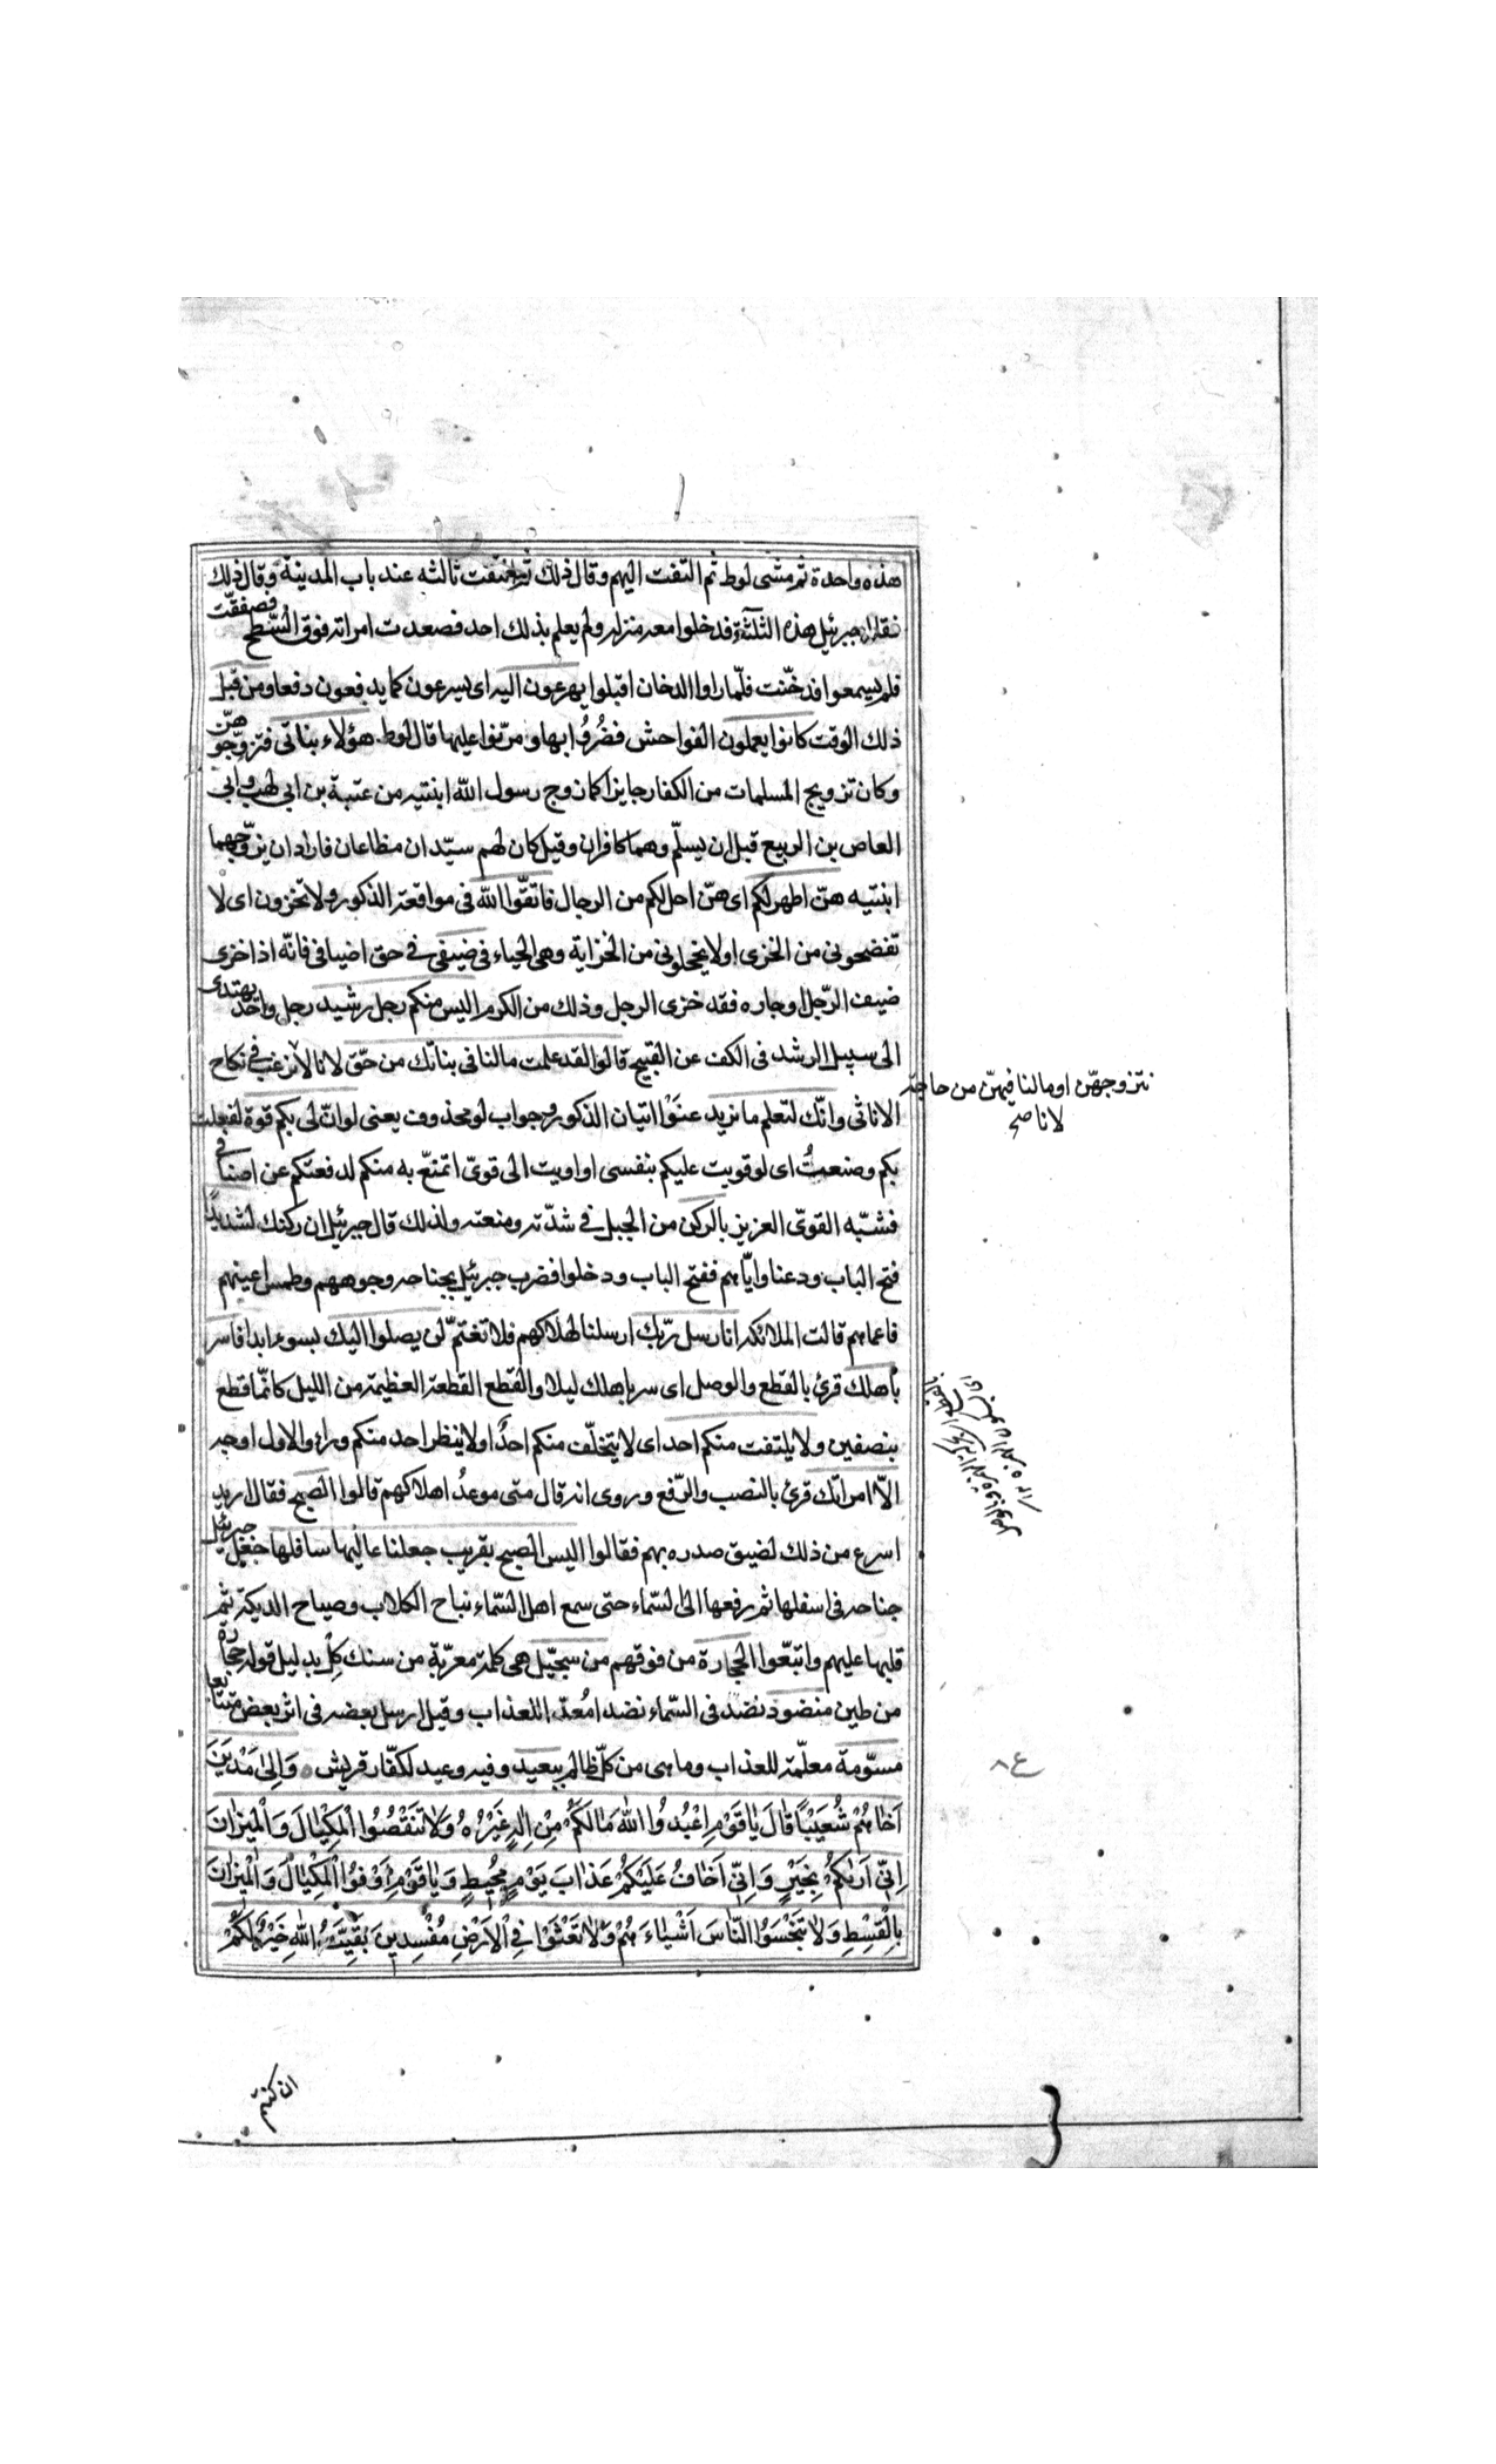 هذه واحدة ثم مشى لوط ثم التفت اليهم وقال ذلك ثم التفت ثالثه عند باب المدينة وقال ذلك
فقال جبرئيل هذه الثلثة فدخلوا معه منزله ولم يعلم بذلك احد فصعدت امراته فوق السّطح فصفقّت
فلم يسمعوا فدخّنت فلمّا راوا الدخان اقبلوا يهرعون اليه اى يسرعون كما يدفعون دفعا ومن قبل
ذلك الوقت كانوا يعملون الفواحش فضُرُوا بها ومرّنوا عليها قال لوط هؤلاء بناتى فتزوّجوهنّ
وكان تزويج المسلمات من الكفار جايزا كما زوج رسول الله ابنتيه من عتبة بن ابى لهب وابى
العاص بن الربيع قبل ان يسلّم وهما كافران وقيل كان لهم سيّدان مطاعان فاراد ان يزوّجهما
ابنتيه هنّ اطهر لكم اى هنّ احل لكم من الرجال فاتقّوا الله فى مواقعة الذكور ولا تخزون اى لا
تفضحونى من الخزى او لا يخجلونى من الخزاية وهى الحياء فى ضيفى فى حق اضيافى فانّه اذا خزى
ضيف الرّجل او جاره فقد خزى الرجل وذلك من الكرم اليس منكم رجل رشيد رجل واحد يهتدى
الى سبيل الرشد فى الكف عن القبيح قالوا لقد علمت مالنا فى بناتك من حّق لانا لا نرغب فى نكاح
الاناثى وانّك لتعلم ما نريد عنَوْا اتيان الذكور وجواب لو محذوف يعنى لو انّ لى بكم قوة لفعلت
بكم وصنعتُ اى لو قويت عليكم بنفسى او اويت الى قوىّ اتمنّع به منكم لدفعتكم عن اضيافى
فشبّه القوىّ العزيز بالركن من الجبل فى شدّته ومنعته ولذلك قال جبرئيل ان ركنك لشديدٌ
فتح الباب ودعنا وايّاهم ففتح الباب ودخلوا فضرب جبرئيل بجناحه وجوههم وطمس اعينهم
فاعماهم قالت الملائكة انا رسل ربّك ارسلنا لهلاكهم فلا تغتمّ لن يصلوا اليك بسوء ابدا فاسر
بأهلك قرئ بالقطع والوصل اى سر باهلك ليلا والقطع القطعة العظيمة من الليل كانّما قطع
بنصفين ولا يلتفت منكم احد اى لا يتخلّف منكم احدٌ او لا ينظر احد منكم وراءه والاول اوجه
الاّ امراتك قرئ بالنصب والرّفع وروى انه قال متى موعدُ اهلاكهم قالوا الصبح فقال اريد
اسرع من ذلك لضيق صدره بهم فقالوا اليس الصبح بقريب جعلنا عاليها سافلها جعل جبرئيل
جناحه فى اسفلها ثم رفعها الى السّماء حتى سمع اهل السّماء نباح الكلاب وصياح الديكة ثم
قلبها عليهم واتبعّوا الحجارة من فوقهم من سجيّل هى كلمة معرّبة من سنك كِل بدليل قوله حجارة
من طين منضود نضد فى السّماء نضدا مُعدّا للعذاب وقيل ارسل بعضه فى اثر بعض متتابعا
مسوّمة معلّمة للعذاب وما هى من كلّ ظالم ببعيد وفيه وعيد لكفّار قريش وَاِلىٰ مَدْيَنَ
اَخاهُمْ شُعَيْبًا قٰالَ يٰا قَوْمِ اعْبُدُوا اللّٰهَ مٰا لَكُمْ مِنْ اِلٰهٍ غَيْرُهُ وَلاٰ تَنْقُصُوا الْمِكْيٰالَ وَالْمِيزٰانَ
اِنّى اَرٰىكُمْ بِخَيْرٍ وَاِنّى اَخٰافُ عَلَيْكُمْ عَذٰابَ يَوْمٍ مُحِيطٍ وَيٰا قَوْمِ اَوْفُوا الْمِكْيٰالَ وَالْمِيزٰانَ
بِالْقِسْطِ وَلاٰ تَبْخَسُوا النّٰاسَ اَشْيٰاءَهُمْ وَلاٰ تَعْثَوْا فِى الْاَرْضِ مُفْسِدِينَ بَقِيَّةُ اللّٰهِ خَيْرٌ لَكُمْ
نتزوجهّن او مالنا فيهنّ من حاجة
لانا صح
ان كنتم